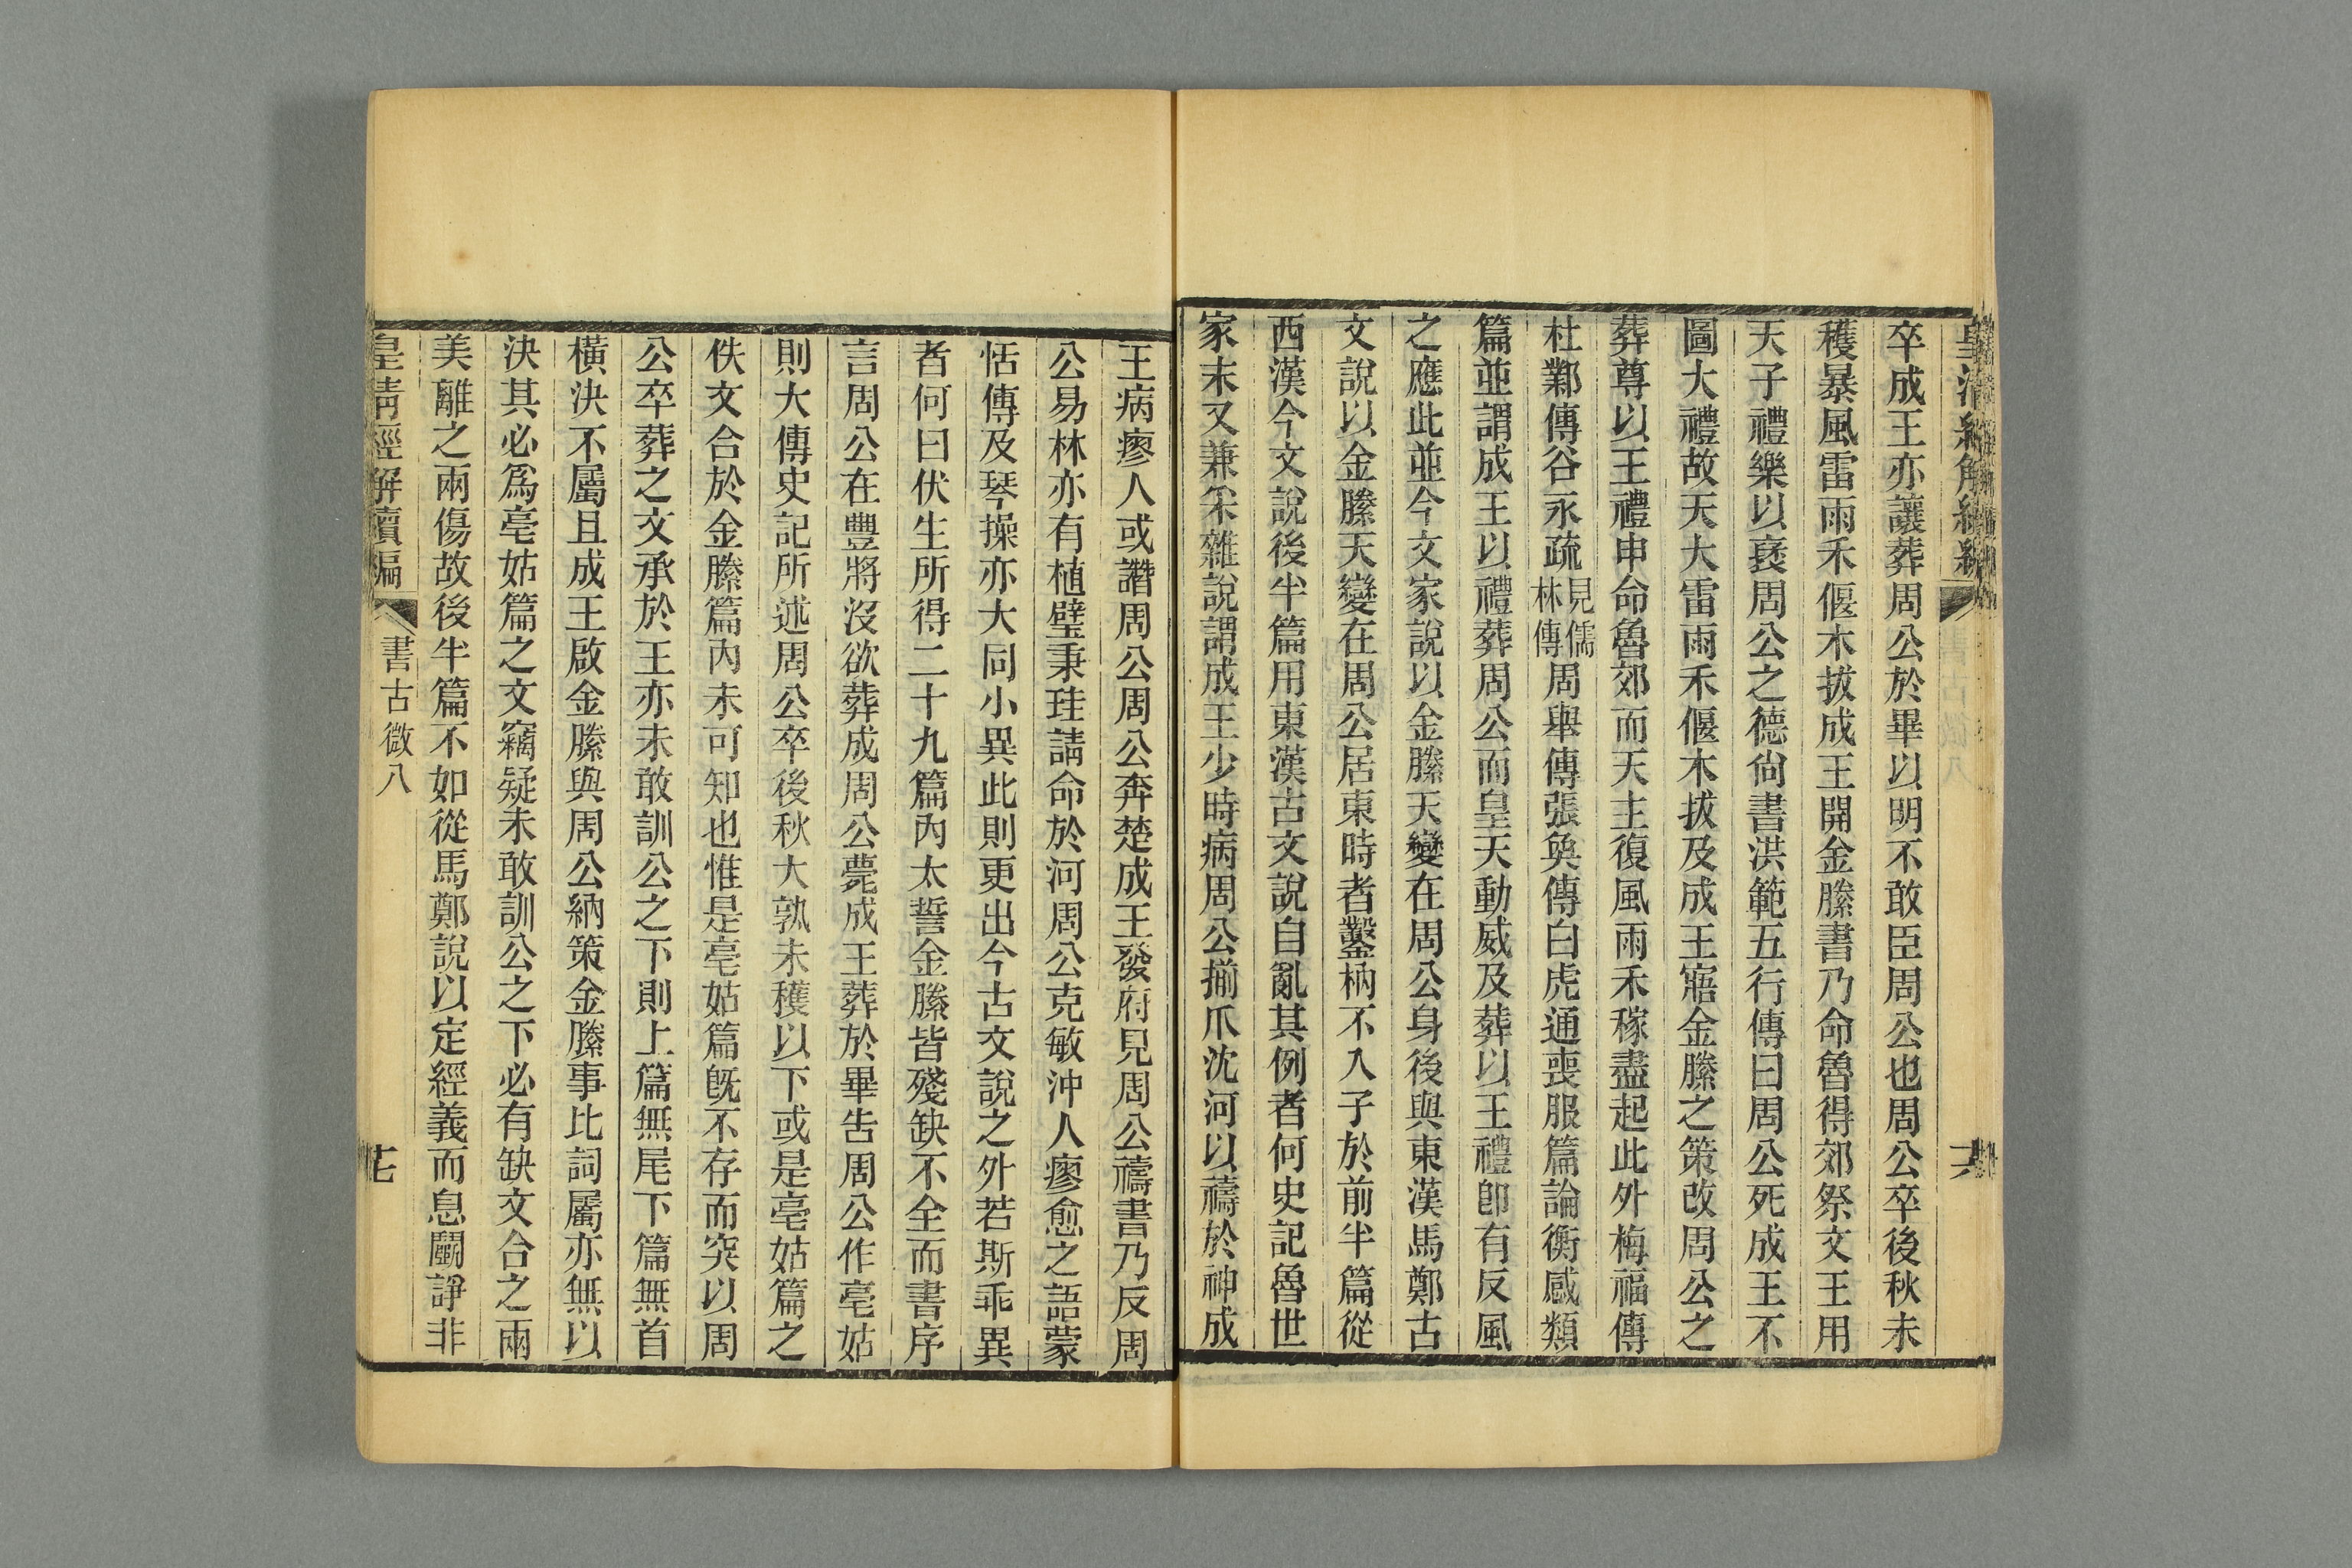 卒成王亦讓葬周公於畢以明不敢臣周公也周公卒後秋未
穫暴風雷雨禾偃木拔成王開金縢書乃命魯得郊祭文王用
天子禮樂以褒周公之德尙書洪範五行傳曰周公死成王不
圖大禮故天大雷雨禾偃木拔及成王寤金縢之策改周公之
葬尊以王禮申命魯郊而天主復風雨禾稼盡起此外梅福傳
杜鄴傳谷永疏見儒林傳周舉傳張奐傳白虎通喪服篇論衡感類
篇並謂成王以禮葬周公而皇天動威及葬以王禮卽有反風
之應此並今文家說以金縢天變在周公身後與東漢馬鄭古
文說以金縢天變在周公居東時者鑿枘不入子於前半篇從
西漢今文說後半篇用東漢古文說自亂其例者何史記魯世
家末又兼采雜說謂成王少時病周公揃爪沈河以禱於神成
王病瘳人或譖周公周公奔楚成王發府見周公禱書乃反周
公易林亦有植璧秉珪請命於河周公克敏沖人瘳愈之語蒙
恬傳及琴操亦大同小異此則更出今古文說之外若斯乖異
者何曰伏生所得二十九篇內太誓金縢皆殘缺不全而書序
言周公在豐將沒欲葬成周公薨成王葬於畢告周公作亳姑
則大傳史記所述周公卒後秋大孰未穫以下或是亳姑篇之
佚文合於金縢篇內未可知也惟是亳姑篇旣不存而突以周
公卒葬之文承於王亦未敢訓公之下則上篇無尾下篇無首
橫決不屬且成王啟金縢與周公納策金縢事比詞屬亦無以
決其必爲亳姑篇之文竊疑未敢訓公之下必有缺文合之兩
美離之兩傷故後半篇不如從馬鄭說以定經義而息鬭諍非
皇淸經解續編
書古微八